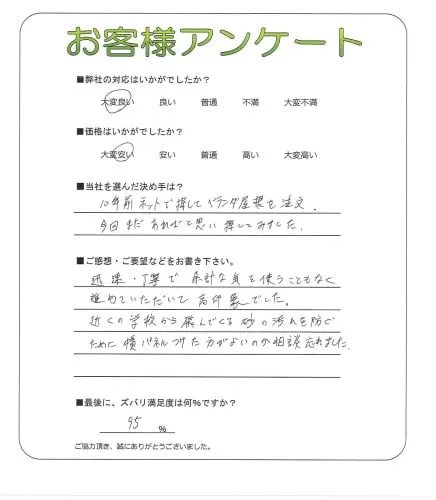 お客様アンケート
■弊社の対応はいかがでしたか?
大変良い 良い 普通 不満 大変不満
■価格はいかがでしたか?
大変安い 安い 普通 高い 大変高い
■当社を選んだ決め手は?
10年前ネットで探してベランダ屋根を注文.
今回まだあればと思い探してみました.
■ご感想・ご要望などをお書き下さい。
迅速・丁寧で余計な気を使うこともなく
進めていただいて高印象でした。
近くの学校から飛んでくる砂の汚れを防ぐ
ために横パネルつけた方がよいのか相談忘れました.
■最後に、ズバリ満足度は何%ですか?
95 %
ご協力頂き、誠にありがとうございました。